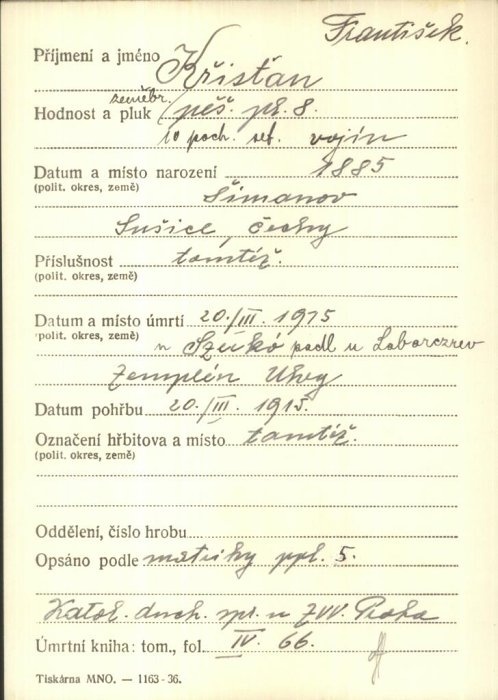 František.
Příjmení a jméno Křišťan
zeměbr.
Hodnost a pluk pěš. pl. 8.
10 poch. set. vojín
Datum a místo narození 1885
(polit. okres, země) Šimanov
Sušice, Čechy
Příslušnost tamtéž.
(polit. okres, země)
Datum a místo úmrtí 20./III. 1915
(polit. okres, země) u Szukó padl u Laborczrev
Zemplén Uhry
Datum pohřbu 20./III. 1915.
Označení hřbitova a místo tamtéž.
(polit. okres, země)
Oddělení, číslo hrobu
Opsáno podle matriky ppl. 5.
Katol. duch. spr. u ZVV. Praha
Úmrtní kniha: tom., fol. IV. 66.
Tiskárna MNO. — 1163-36.